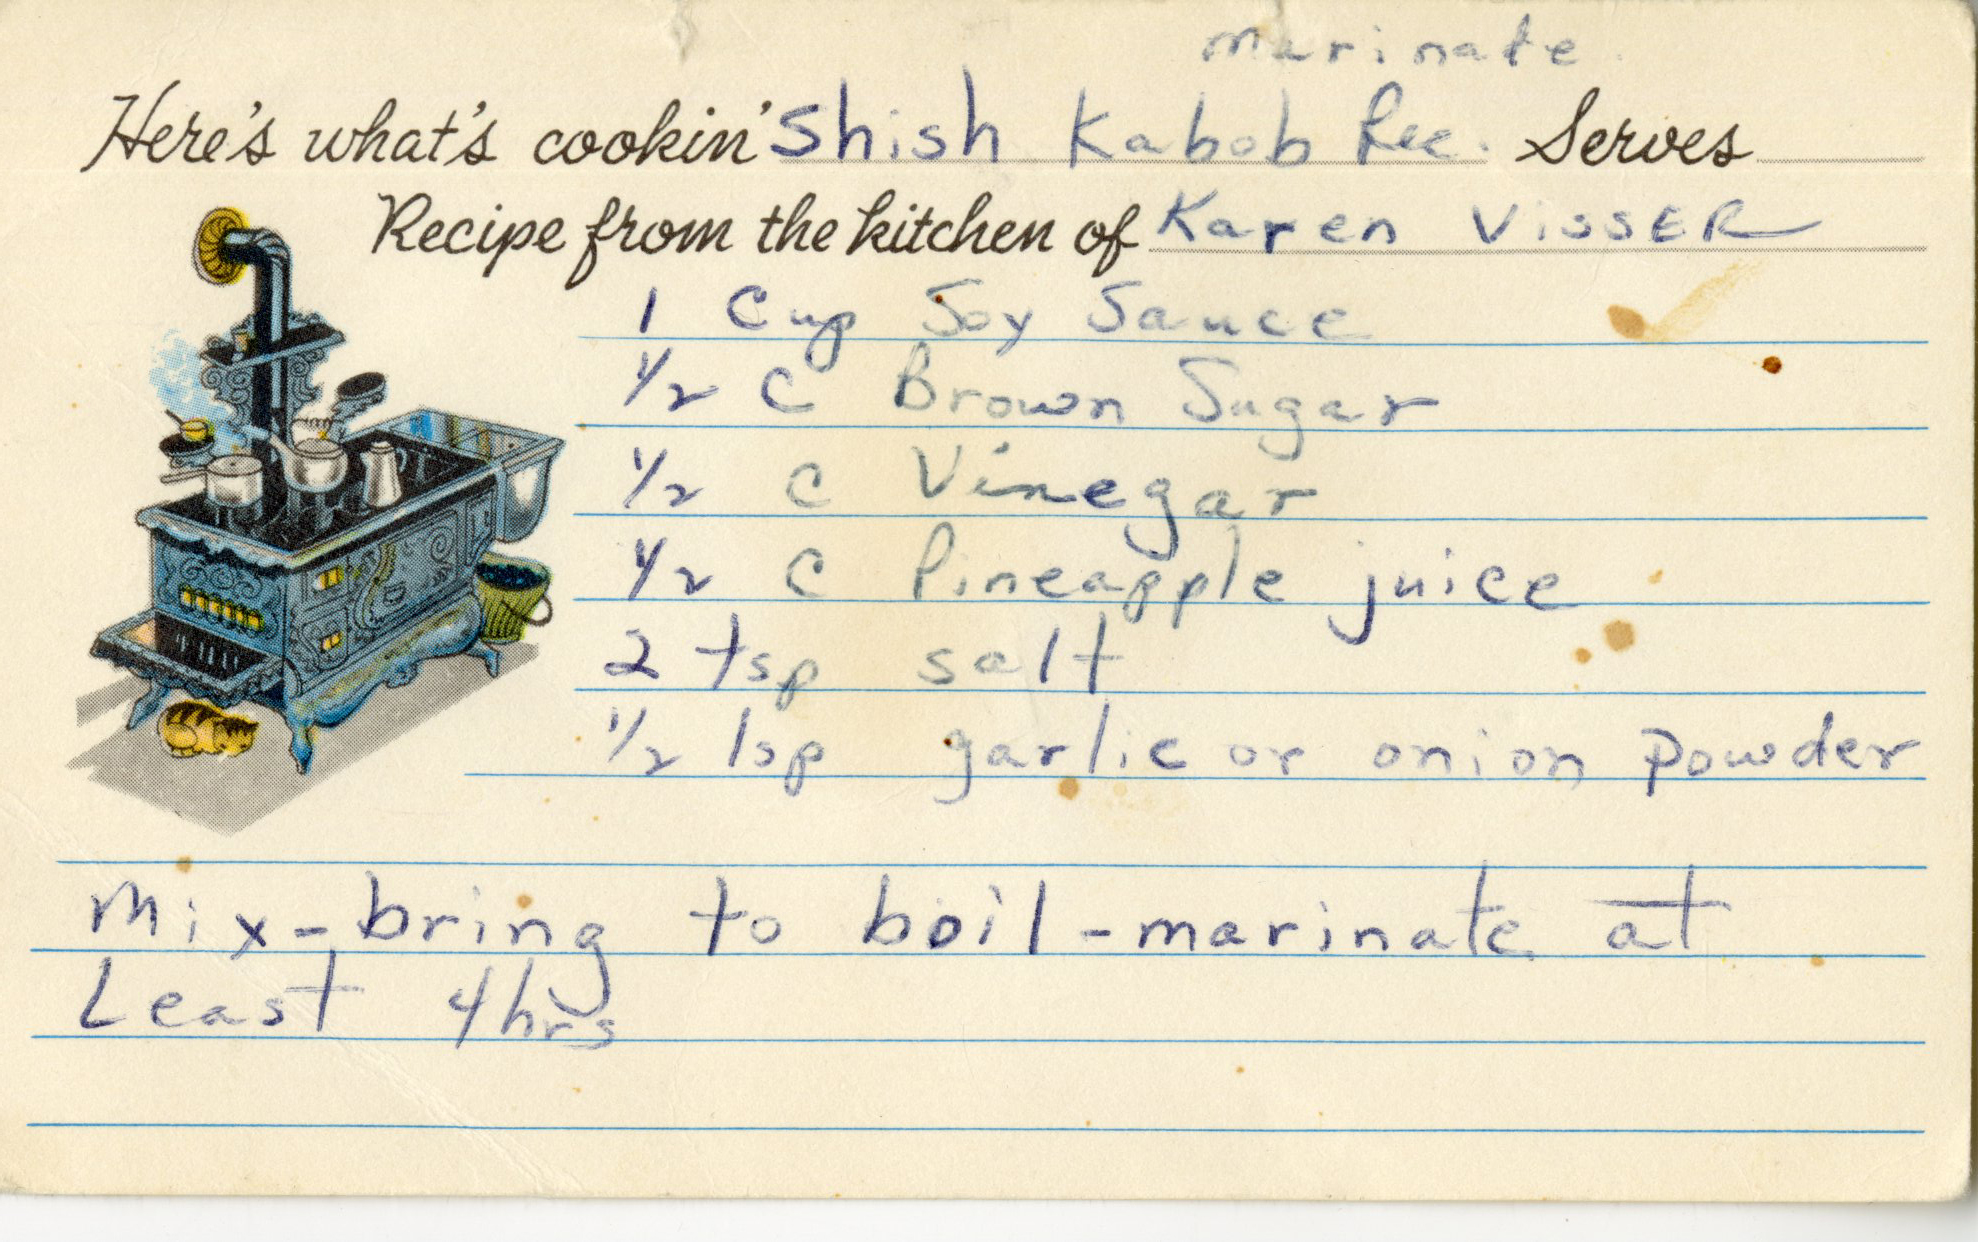 marinate
Here's what's cookin' Shish Kabob Rec. Serves
Recipe from the kitchen of Karen VissER
1 Cup Soy Sauce
1/2 C Brown Sugar
1/2 C Vinegar
1/2 C Pineapple juice
2 tsp salt
1/2 tsp garlic or onion powder
Mix - bring to boil - marinate at
Least 4 hrs